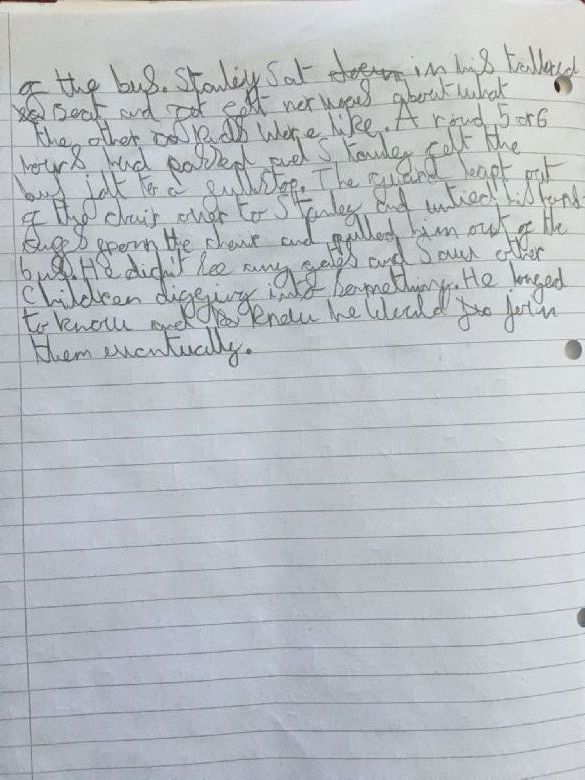 of the bus. Stanley Sat down in his tattered
seat and felt nervous about what
the other kids were like. A round 5 or 6
hours had passed and Stanley felt the
bus jolt to a full stop. The guard leapt out
of the chair over to Stanley and untied his hand
from the chair and pulled him out of the
bus. He didn't see any gates and saw other
Children digging into something. He longed
to know and knew he would join
them eventually.